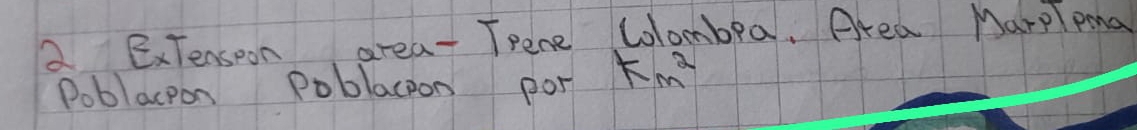 2 Extension area - Tiene Colombia. Area Maritima
Poblacion Poblacion por Km²